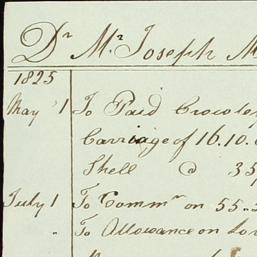 Dr Mr Joseph M
1825
May 1 To Paid Crowley
Carriage of 16.10.
Shell @ 35
July 1 To Commn on 55.
" To Allowance on